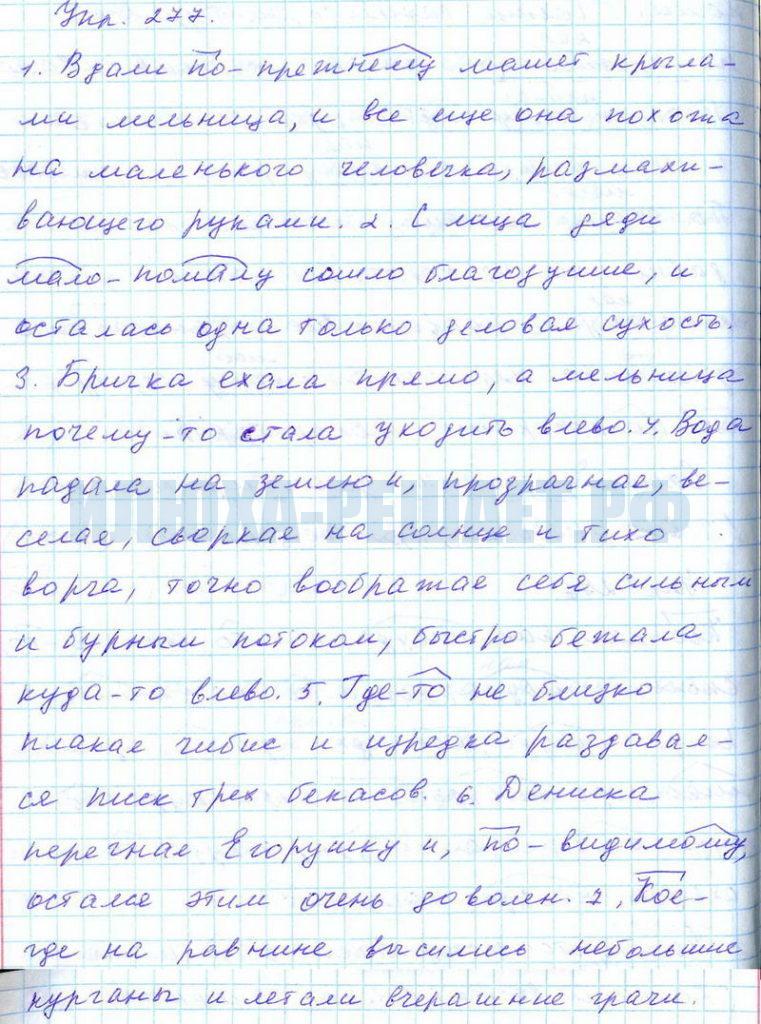 Упр. 277.
1. Вдали по-прежнему машет крыла-
ми мельница, и все еще она похожа
на маленького человечка, размахи-
вающего руками. 2. С лица дяди
мало-помалу сошло благодушие, и
осталась одна только деловая сухость.
3. Бричка ехала прямо, а мельница
почему-то стала уходить влево. 4. Вода
падала на землю и, прозрачная, ве-
селая, сверкая на солнце и тихо
ворча, точно воображая себя сильным
и бурным потоком, быстро бежала
куда-то влево. 5. Где-то не близко
плакал чибис и изредка раздавал-
ся писк трех бекасов. 6. Дениска
перегнал Егорушку и, по-видимому,
остался этим очень доволен. 7. Кое-
где на равнине высились небольшие
курганы и летали вчерашние грачи.
ИЛЮХА-РЕШАЕТ.РФ